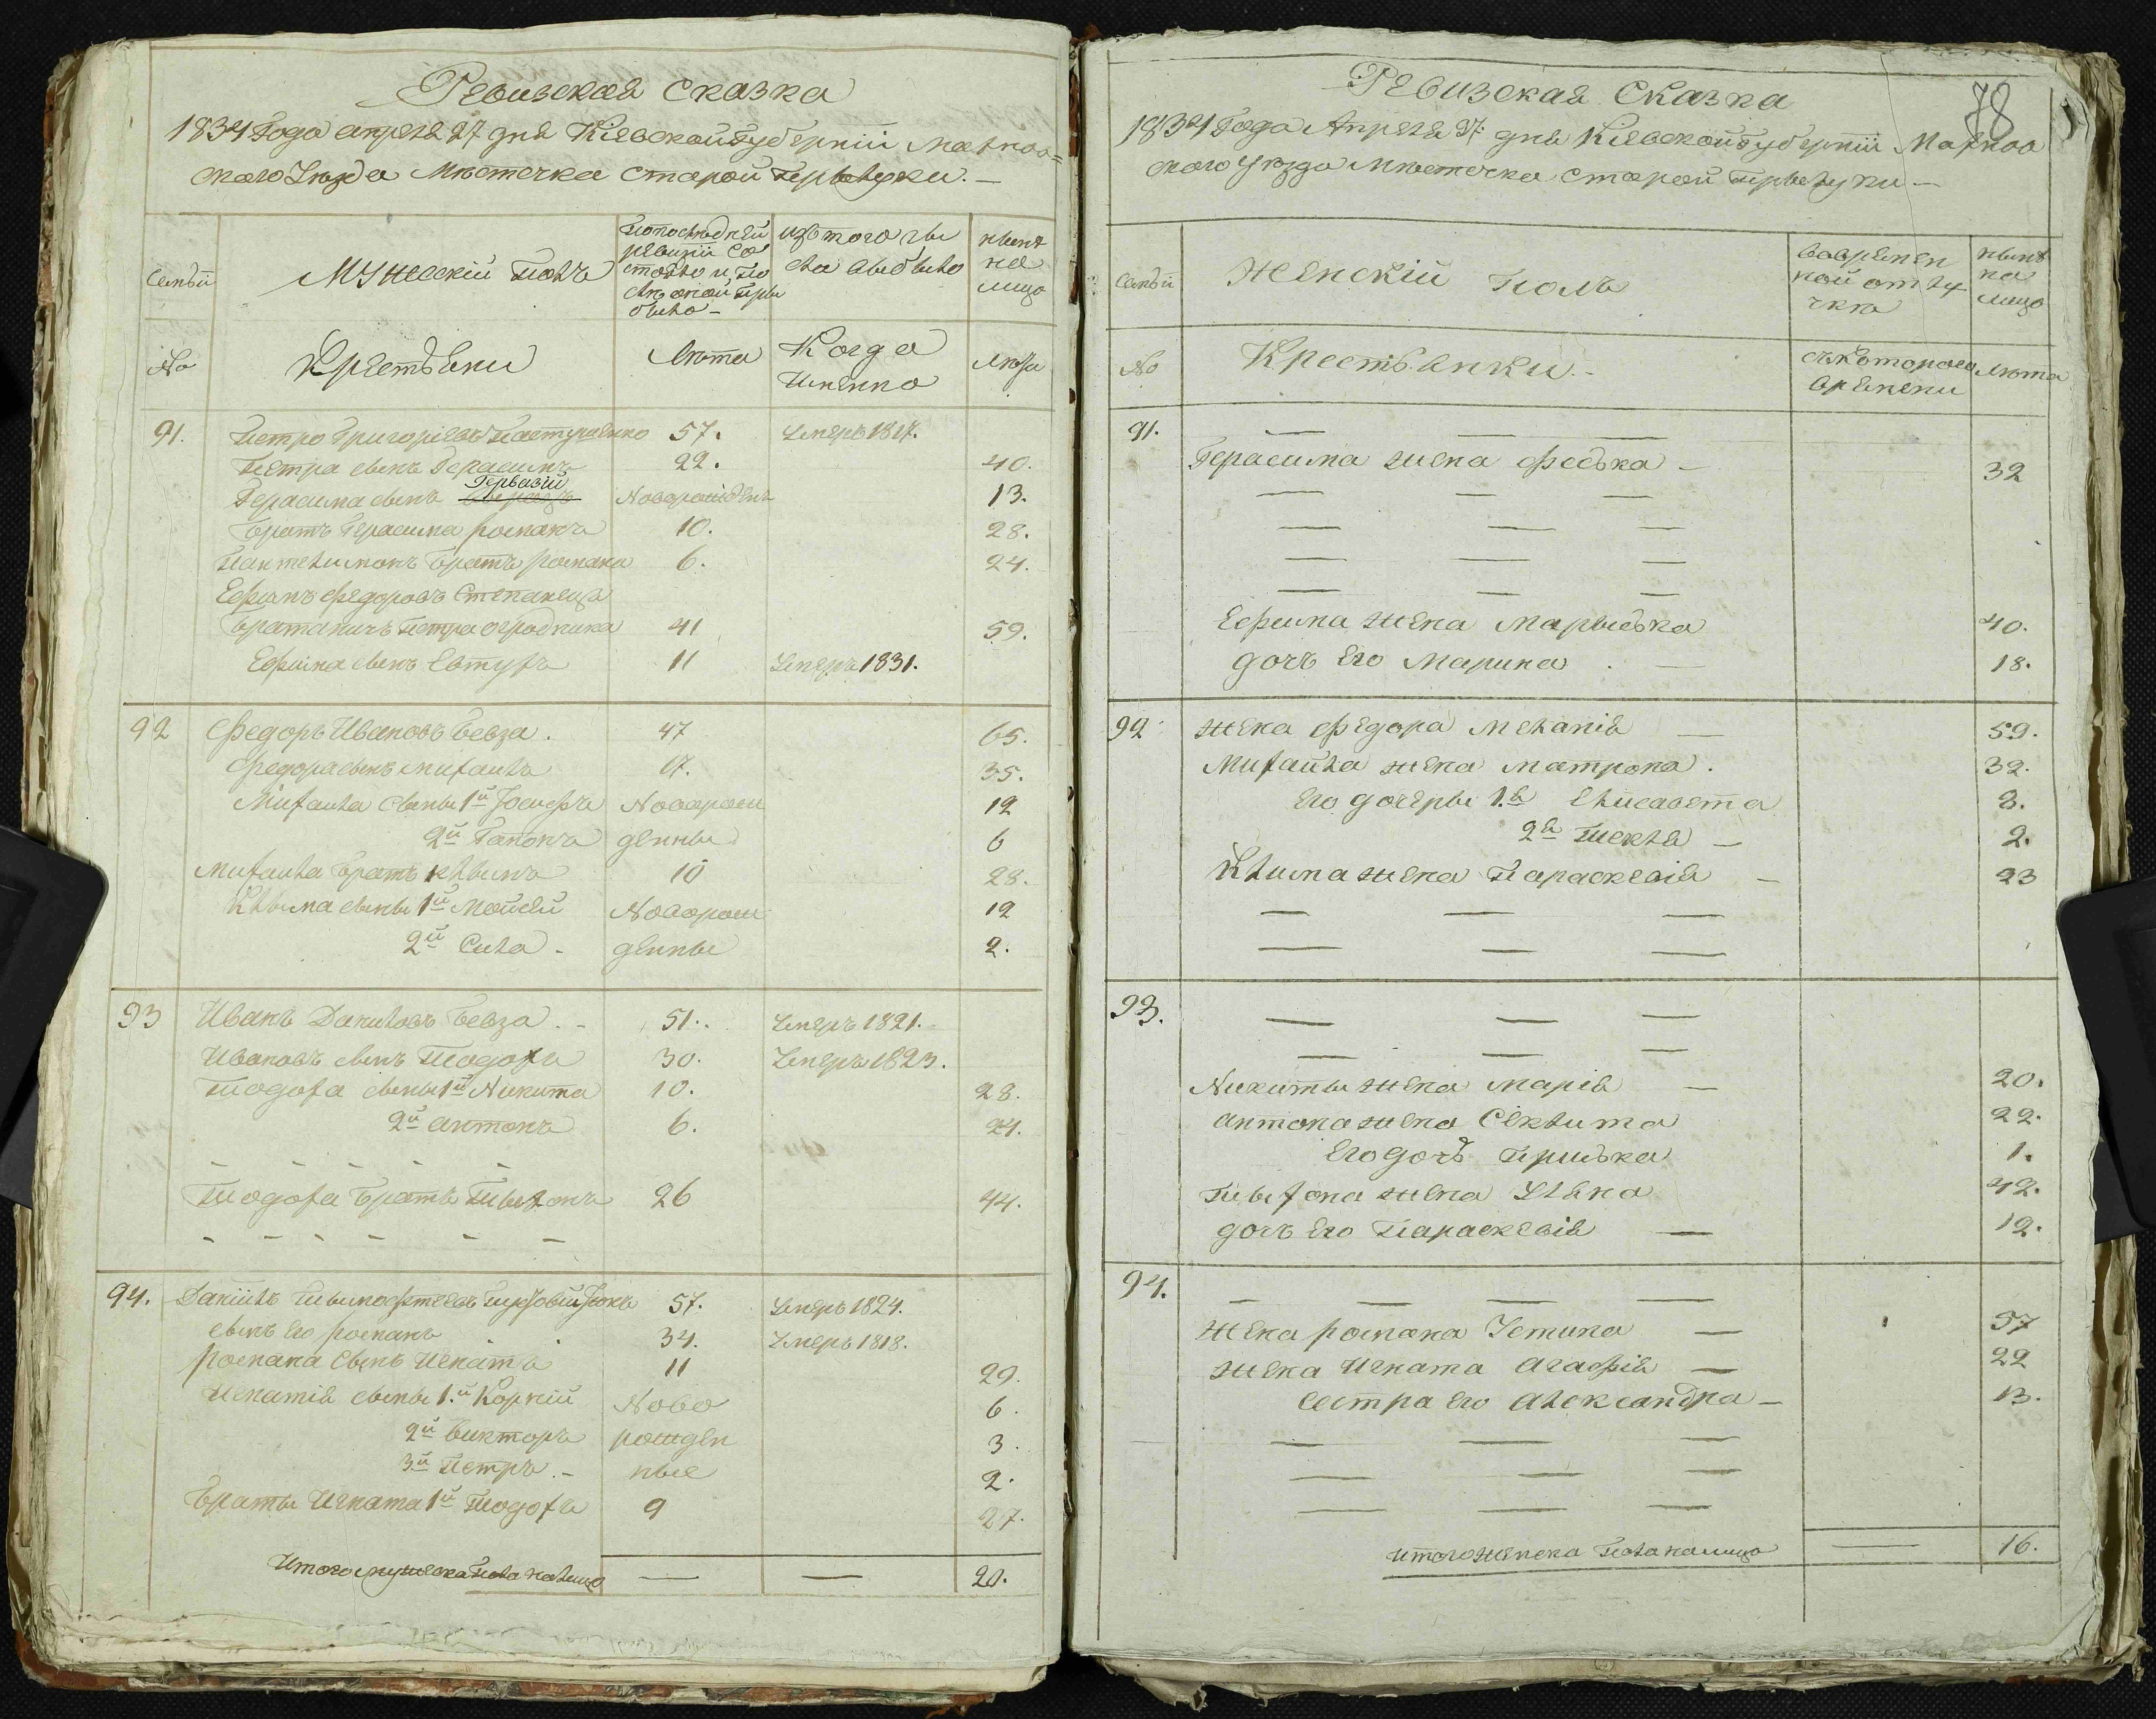 Ревизская Сказка
1834 Года апреля 27 дня Кіевской Губерніи Махнов=
скаго Уезда Местечка Старой Прылуки. —
Семьи
Мужескій Полъ
По последней ревизіи состояло и после оной прыбыло —
изъ того числа выбыло
ныне на лицо
№
Крестьяни
Лета
Когда имянно
Лета
91. Петро Григорьевъ 57. Умеръ 1817.
Петра сынъ Герасимъ 22. 40.
Гервазій
Герасима сынъ Новорожденъ 13.
Братъ Герасима Романъ 10. 28.
Пантелимонъ Братъ Романа 6. 24.
Ефимъ Федоровъ Степанецъ
Братаничъ Петра Огродника 41 59.
Ефима сынъ Евтухъ 11 Умеръ 1831.
92 Федоръ Ивановъ Бевза. 47 65.
Федора сынъ Михайла 17. 35.
Михайла сыны 1й Іосифъ Новорож 12
2й Гапонъ денны 6
Михайла Братъ Клымъ 10 28.
Клыма сыны 1й Мойсей Новорож 12
2й Сила - денны 2.
93 Иванъ Даниловъ Бевза. - 51. Умеръ 1821.
Ивановъ сынъ Тодоха 30. Умеръ 1823.
Тодоха сыны 1й Никита 10. 28.
2й Антонъ 6. 24.
- - - - -
Тодоха Братъ Тыхонъ 26 44.
- - - - - -
94. Данило Тымофтеевъ 57. Умеръ 1824.
сынъ его Романъ 34. Умеръ 1818.
Романа сынъ Игнатъ 11 29.
Игнатія сыны 1.й Корній Ново 6.
2й Викторъ рожден 3.
3й Петръ. - ные 2.
Браты Игната 1й Тодоха 9 27.
Итого мужеска пола налицо — — 20.
78
Ревизская Сказка
1834 Года Апреля 27. дня Кіевской Губерніи Махнов
скаго Уезда Местечка Старой Прылуки —
Семьи
Женскій Полъ
во временной отлучке
ныне на лицо
№
Крестьянки. -
съ котораго времени
Лета
91. — — —
Герасима жена Феська - 32
— — —
— — —
— — —
— — —
Ефима жена Марыська 40.
дочъ Его Марина. — 18.
92 жена Федора Меланія — 59.
Михайла жена Матрона. 32.
Его дочеры 1.я Елисавета 8.
2я Текля - 2.
Клима жена Параскевія - 23
— — —
— — —
93. — — —
— — —
Никиты жена Марія — 20.
Антона жена Секлита 22.
Его дочъ Приська 1.
Тыхона жена Уляна 42.
дочъ Его Параскевія — 12.
94. — — — —
жена Романа Устина — 57
жена Игната Агафія — 22
Сестра Его Александра - 13.
— — —
— — —
— — —
итого женска пола налицо — 16.